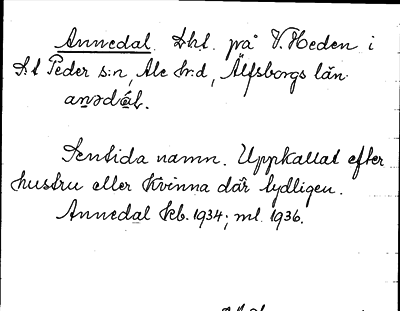 Annedal. Lht. på V. Heden i
S:t Peder s:n, Ale h:d, Älfsborgs län.
anədál.
Sentida namn. Uppkallat efter
hustru eller kvinna där tydligen.
Annedal kb. 1934; ml. 1936.